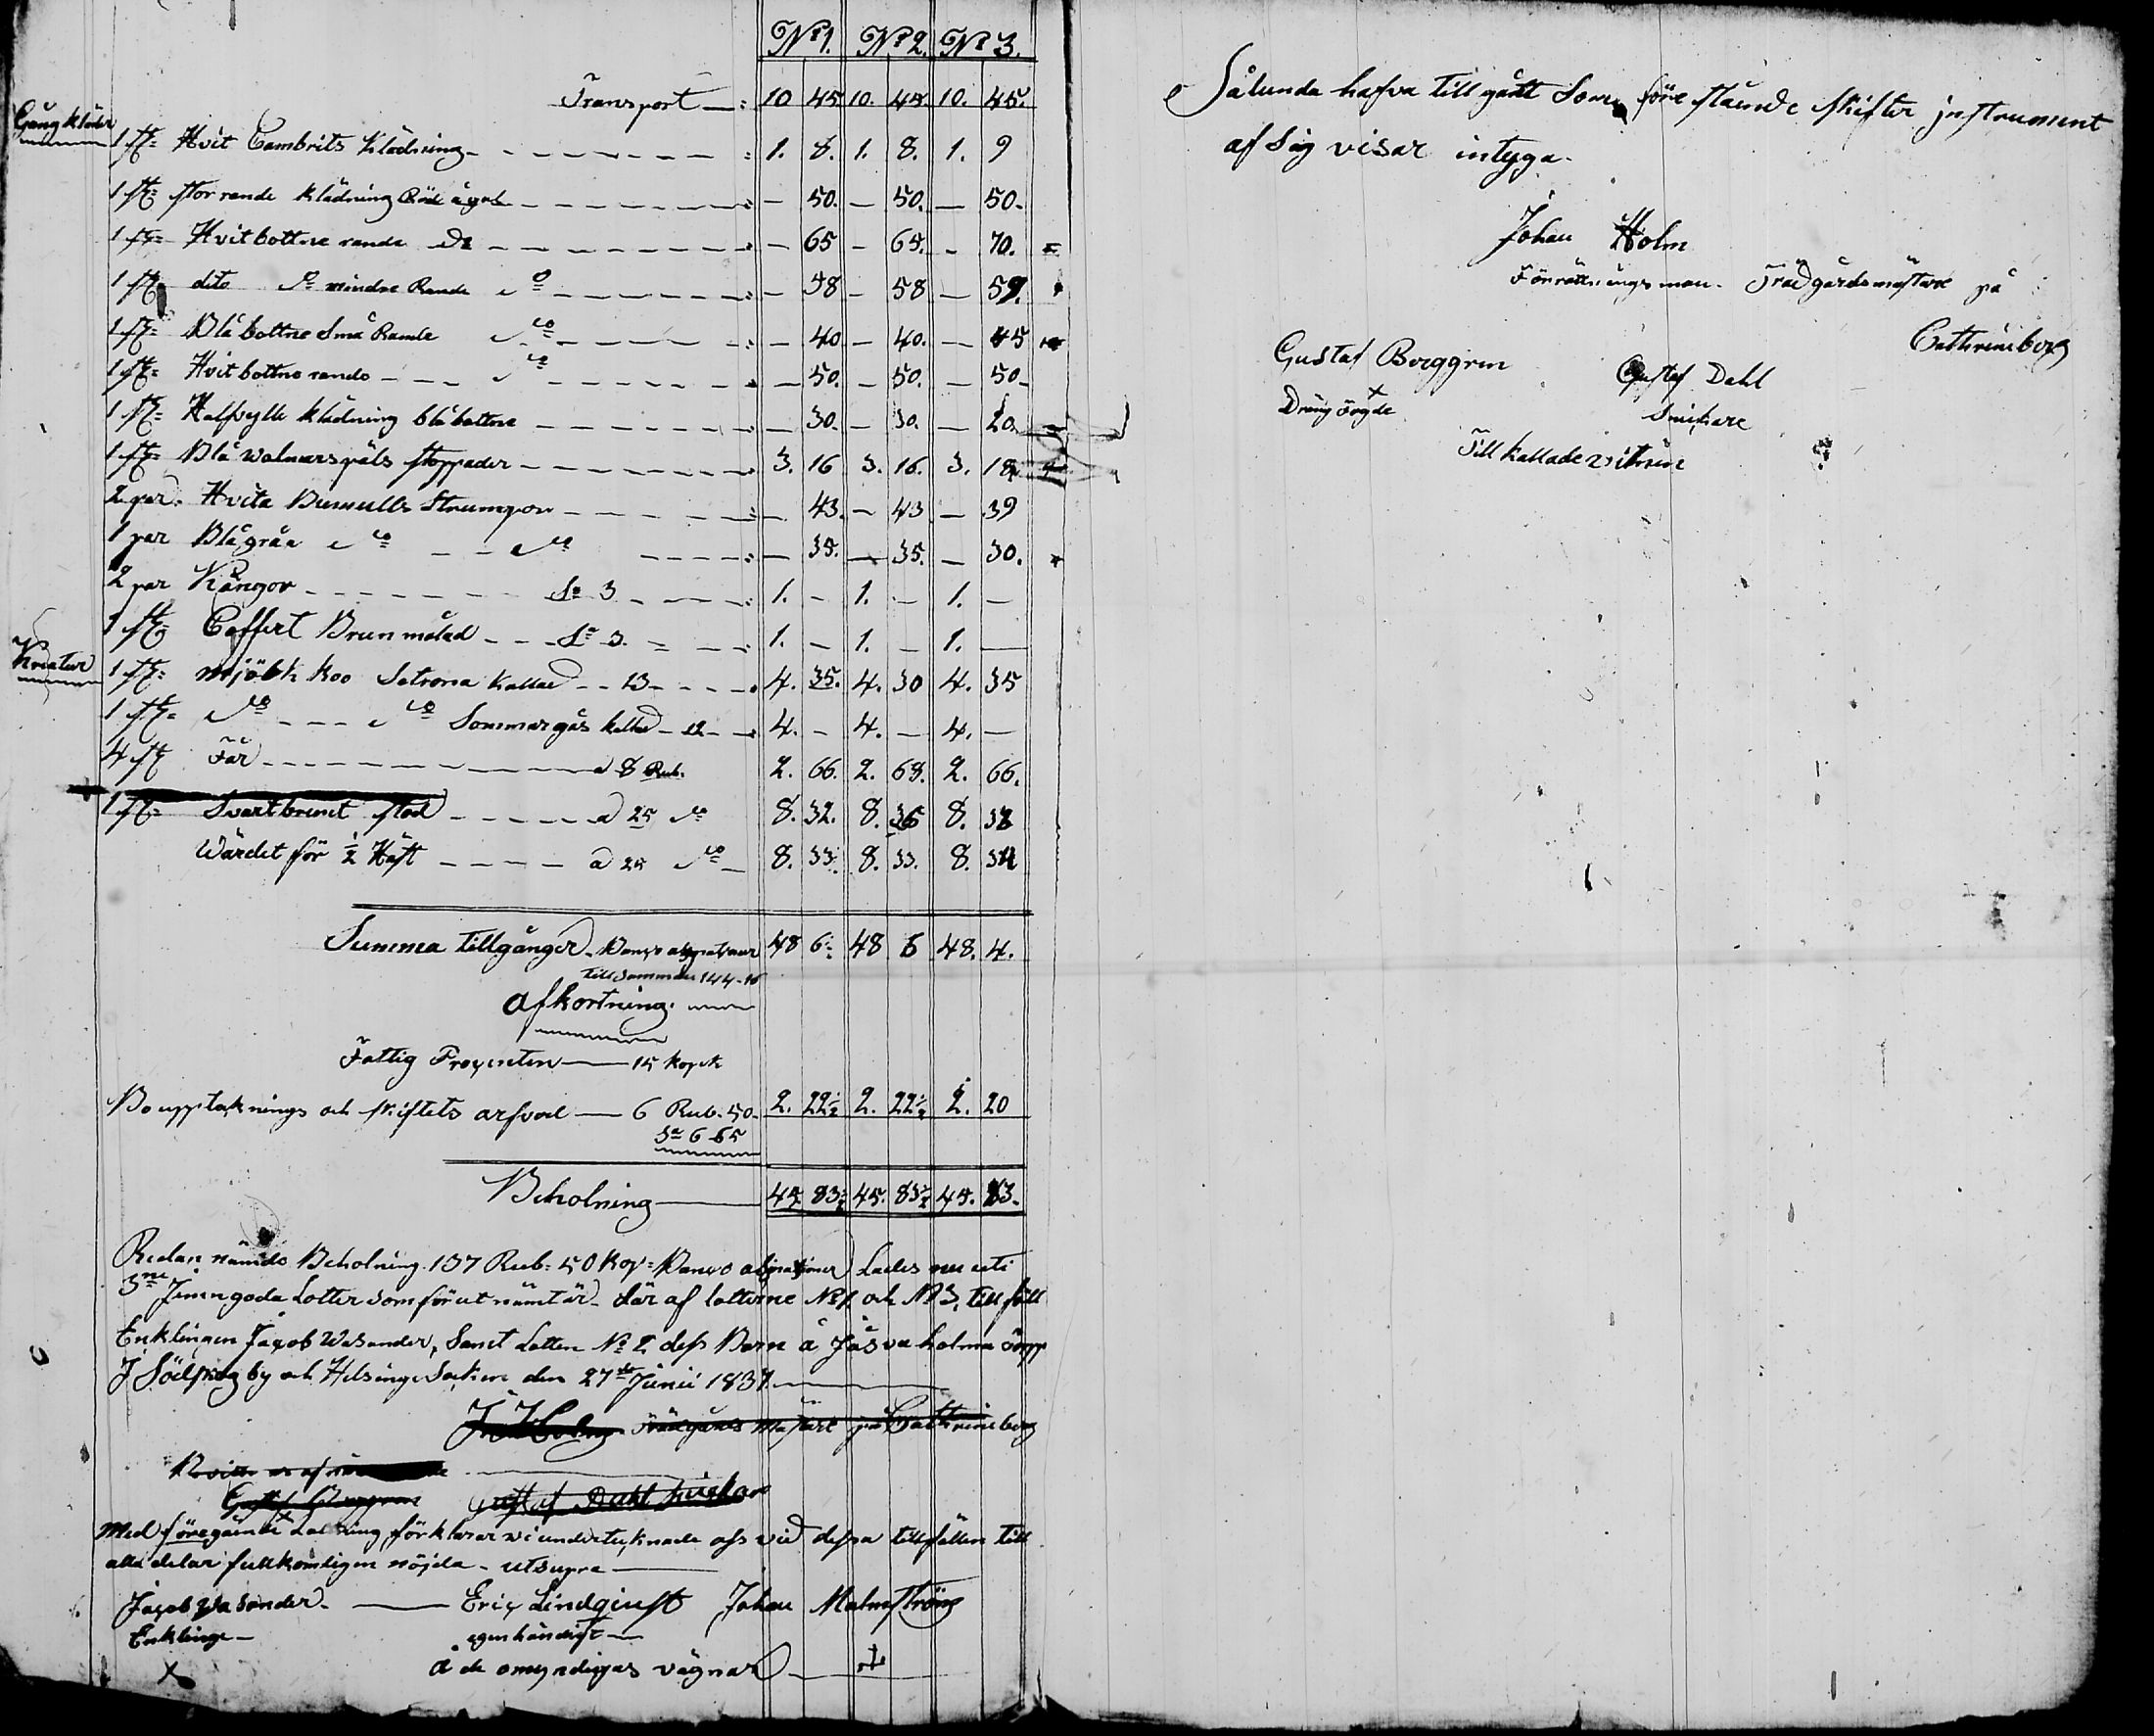 N:o 1. N:o 2. N:o 3.
Transport —: 10 45 10. 45. 10. 45.
Gångkläder
1 st: Hvit Cambrits Klädning - - - 1. 8. 1. 8. 1. 9
1 st: stor rande klädning Röd å gul - - - — 50. — 50. — 50.
1 st: Hvit bottne rande do - - - — 65 — 65. — 70.
1 st: dito do mindre Rande do - - - — 58 — 58 — 59.
1 st: Blå bottne Små Rande do - - - — 40 — 40. — 45
1 st: Hvit bottne rande - - - do - - - — 50. — 50. — 50
1 st: Halfylle klädning blå bottne - - - — 30. — 30. — 20.
1 st: Blå walmarspäls stoppader - - - 3. 16 3. 16. 3. 18
2 par. Hvita Bumulls Strumpor - - - — 43. — 43 — 39
1 par Blågråa do - - do - - - — 35. — 35. — 30.
2 par Kängor - - - Sa 3 - - - 1. — 1. — 1. —
1 st: Coffert Brun målad - - - Sa 3. - - - 1. — 1. — 1. —
Kreatur
1 st: Mjölk Koo Setrona Kallad - - 13 - - - 4. 35. 4. 30 4. 35
1 st: do - - - do Sommargås kallad - 12 - 4. — 4. — 4. —
4 st Får - - - a 8 Rub. 2. 66. 2. 68. 2. 66.
1 st: Svartbrunt stod - - - a 25 do 8. 32. 8. 36 8. 32
Wärdet för 1/2 Häst - - - a 25 do — 8. 33. 8. 33. 8. 34
Summa Tillgånger. Banco assignationer 48 6. 48 6 48. 4.
Till sammans 144-16
Afkortning.
Fattig Procenten — 15 Kopek
Bouppteknings och skiftets arfvod — 6 Rub. 50. 2. 22 1/2 2. 22 1/2 2. 20
Sa 6 65
Beholning — 45. 83 1/2 45. 83 1/2 45. 83.
Redan nämde Beholning 137 Rub: 50 Kop: Banco assignationer Lades nu uti
3ne Jemngoda Lotter som förut nämt är. där af lotterne No 1. och No 3, till föll
Enklingen Jacob Wasander, Samt Lotten No 2 dess Barn å
J by och Helsinge Socken den 27de Junii 1837.
J Holm Trädgårds Mästare på Cathrineberg
Gustaf Dahl
Med föregående förklarar wi undertecknade oss vid dessa tillfällen till
alla delar fullkomligen nöjda - utsupra —
Jacob Wasander. — Eric Lindqvist Johan Malmström
Enkling — egenhändigt —
å de omyndigas vägnar
Sålunda hafva tillgådt Som före stående skiftes instrument
af Sig visar intyga.
Johan Holm
Förrättnings man. Trädgårdsmästare på
Cathrineberg
Gustaf Berggren Gustaf Dahl
Dräng Snickare
Till kallade vitnen